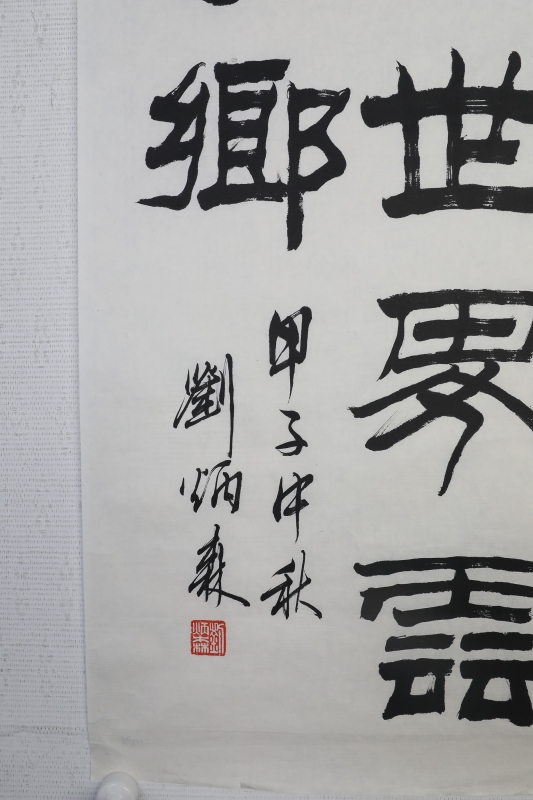 世界雲
鄉
甲子中秋
劉炳森
劉炳森